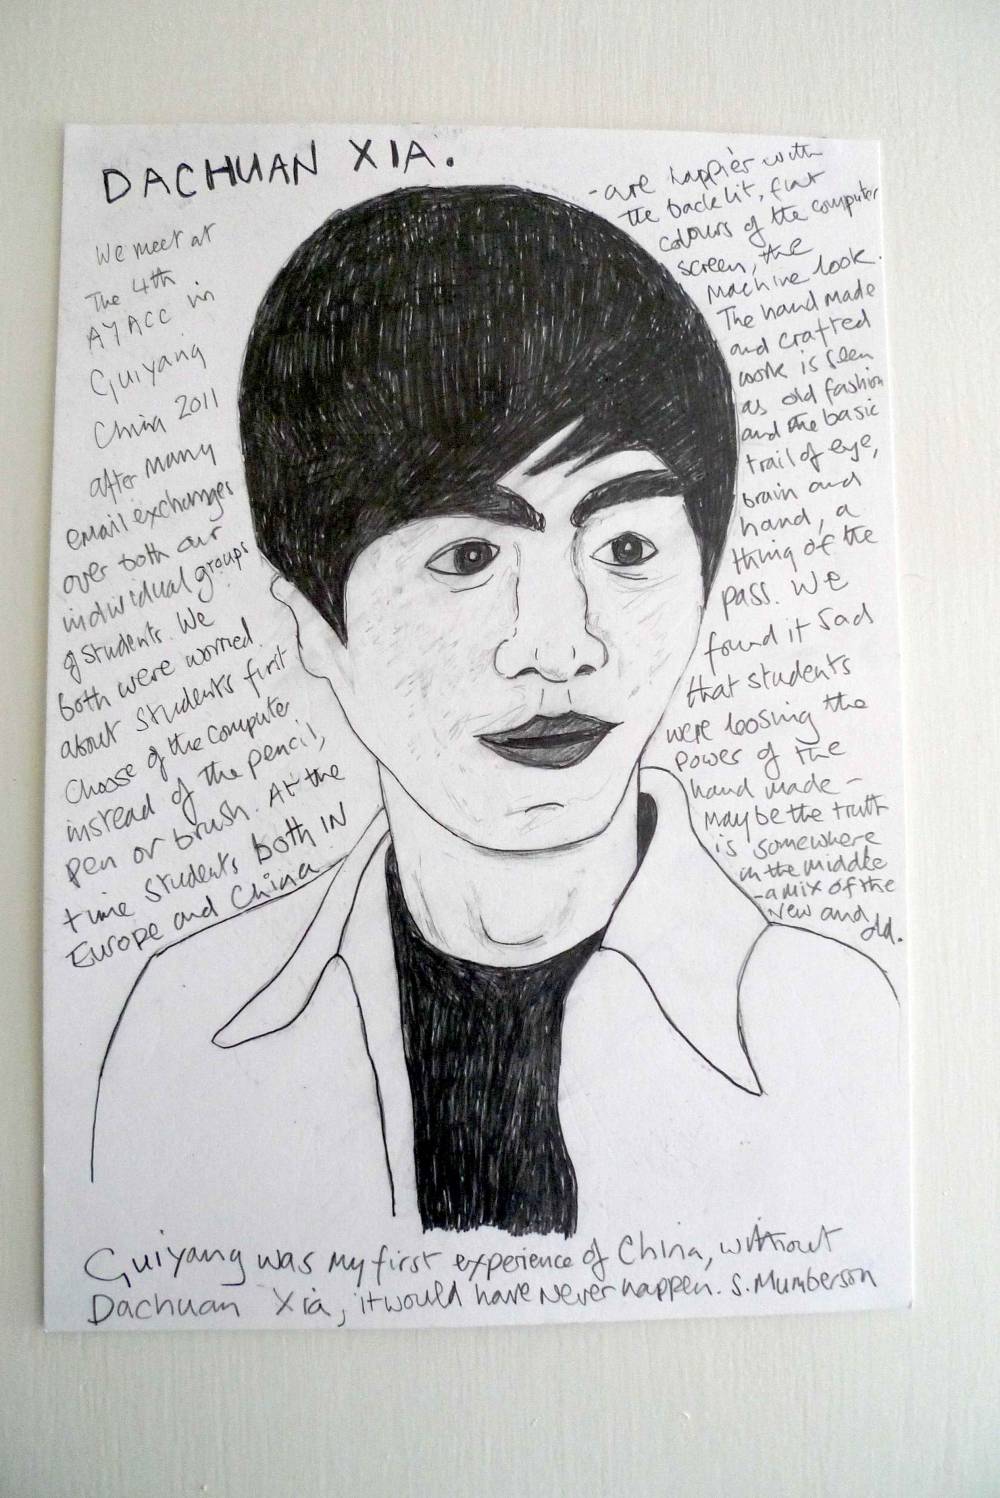 DACHUAN XIA.
We meet at
The 4th
AYACC in
Guiyang
China 2011
after many
email exchanges
over both our
individual groups
of students. We
both were worried
about students first
choose of the computer
instead of the pencil,
pen or brush. At the
time students both IN
Europe and China
-are happier with
the back lit, flat
colours of the computer
screen, the
Machine look.
The hand made
and crafted
work is seen
as old fashion
and the basic
trail of eye,
brain and
hand, a
thing of the
pass. We
found it sad
that students
were loosing the
power of the
hand made -
maybe the truth
is somewhere
in the middle
-a mix of the
New and
old.
Guiyang was my first experience of China, without
Dachuan Xia, it would have never happen. S. Mumberson